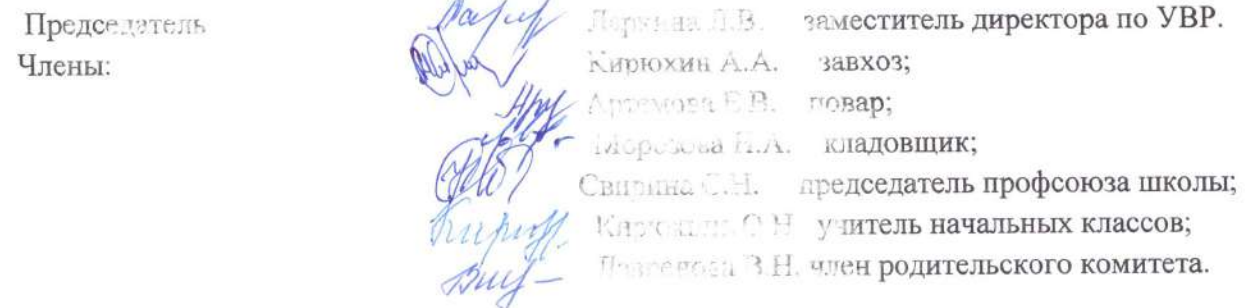 Председатель Ларкина Л.В. заместитель директора по УВР.
Члены: Кирюхин А.А. завхоз;
Артемова Е.В. повар;
Морозова Н.А. кладовщик;
Свирина С.Н. председатель профсоюза школы;
О.Н учитель начальных классов;
В.Н. член родительского комитета.